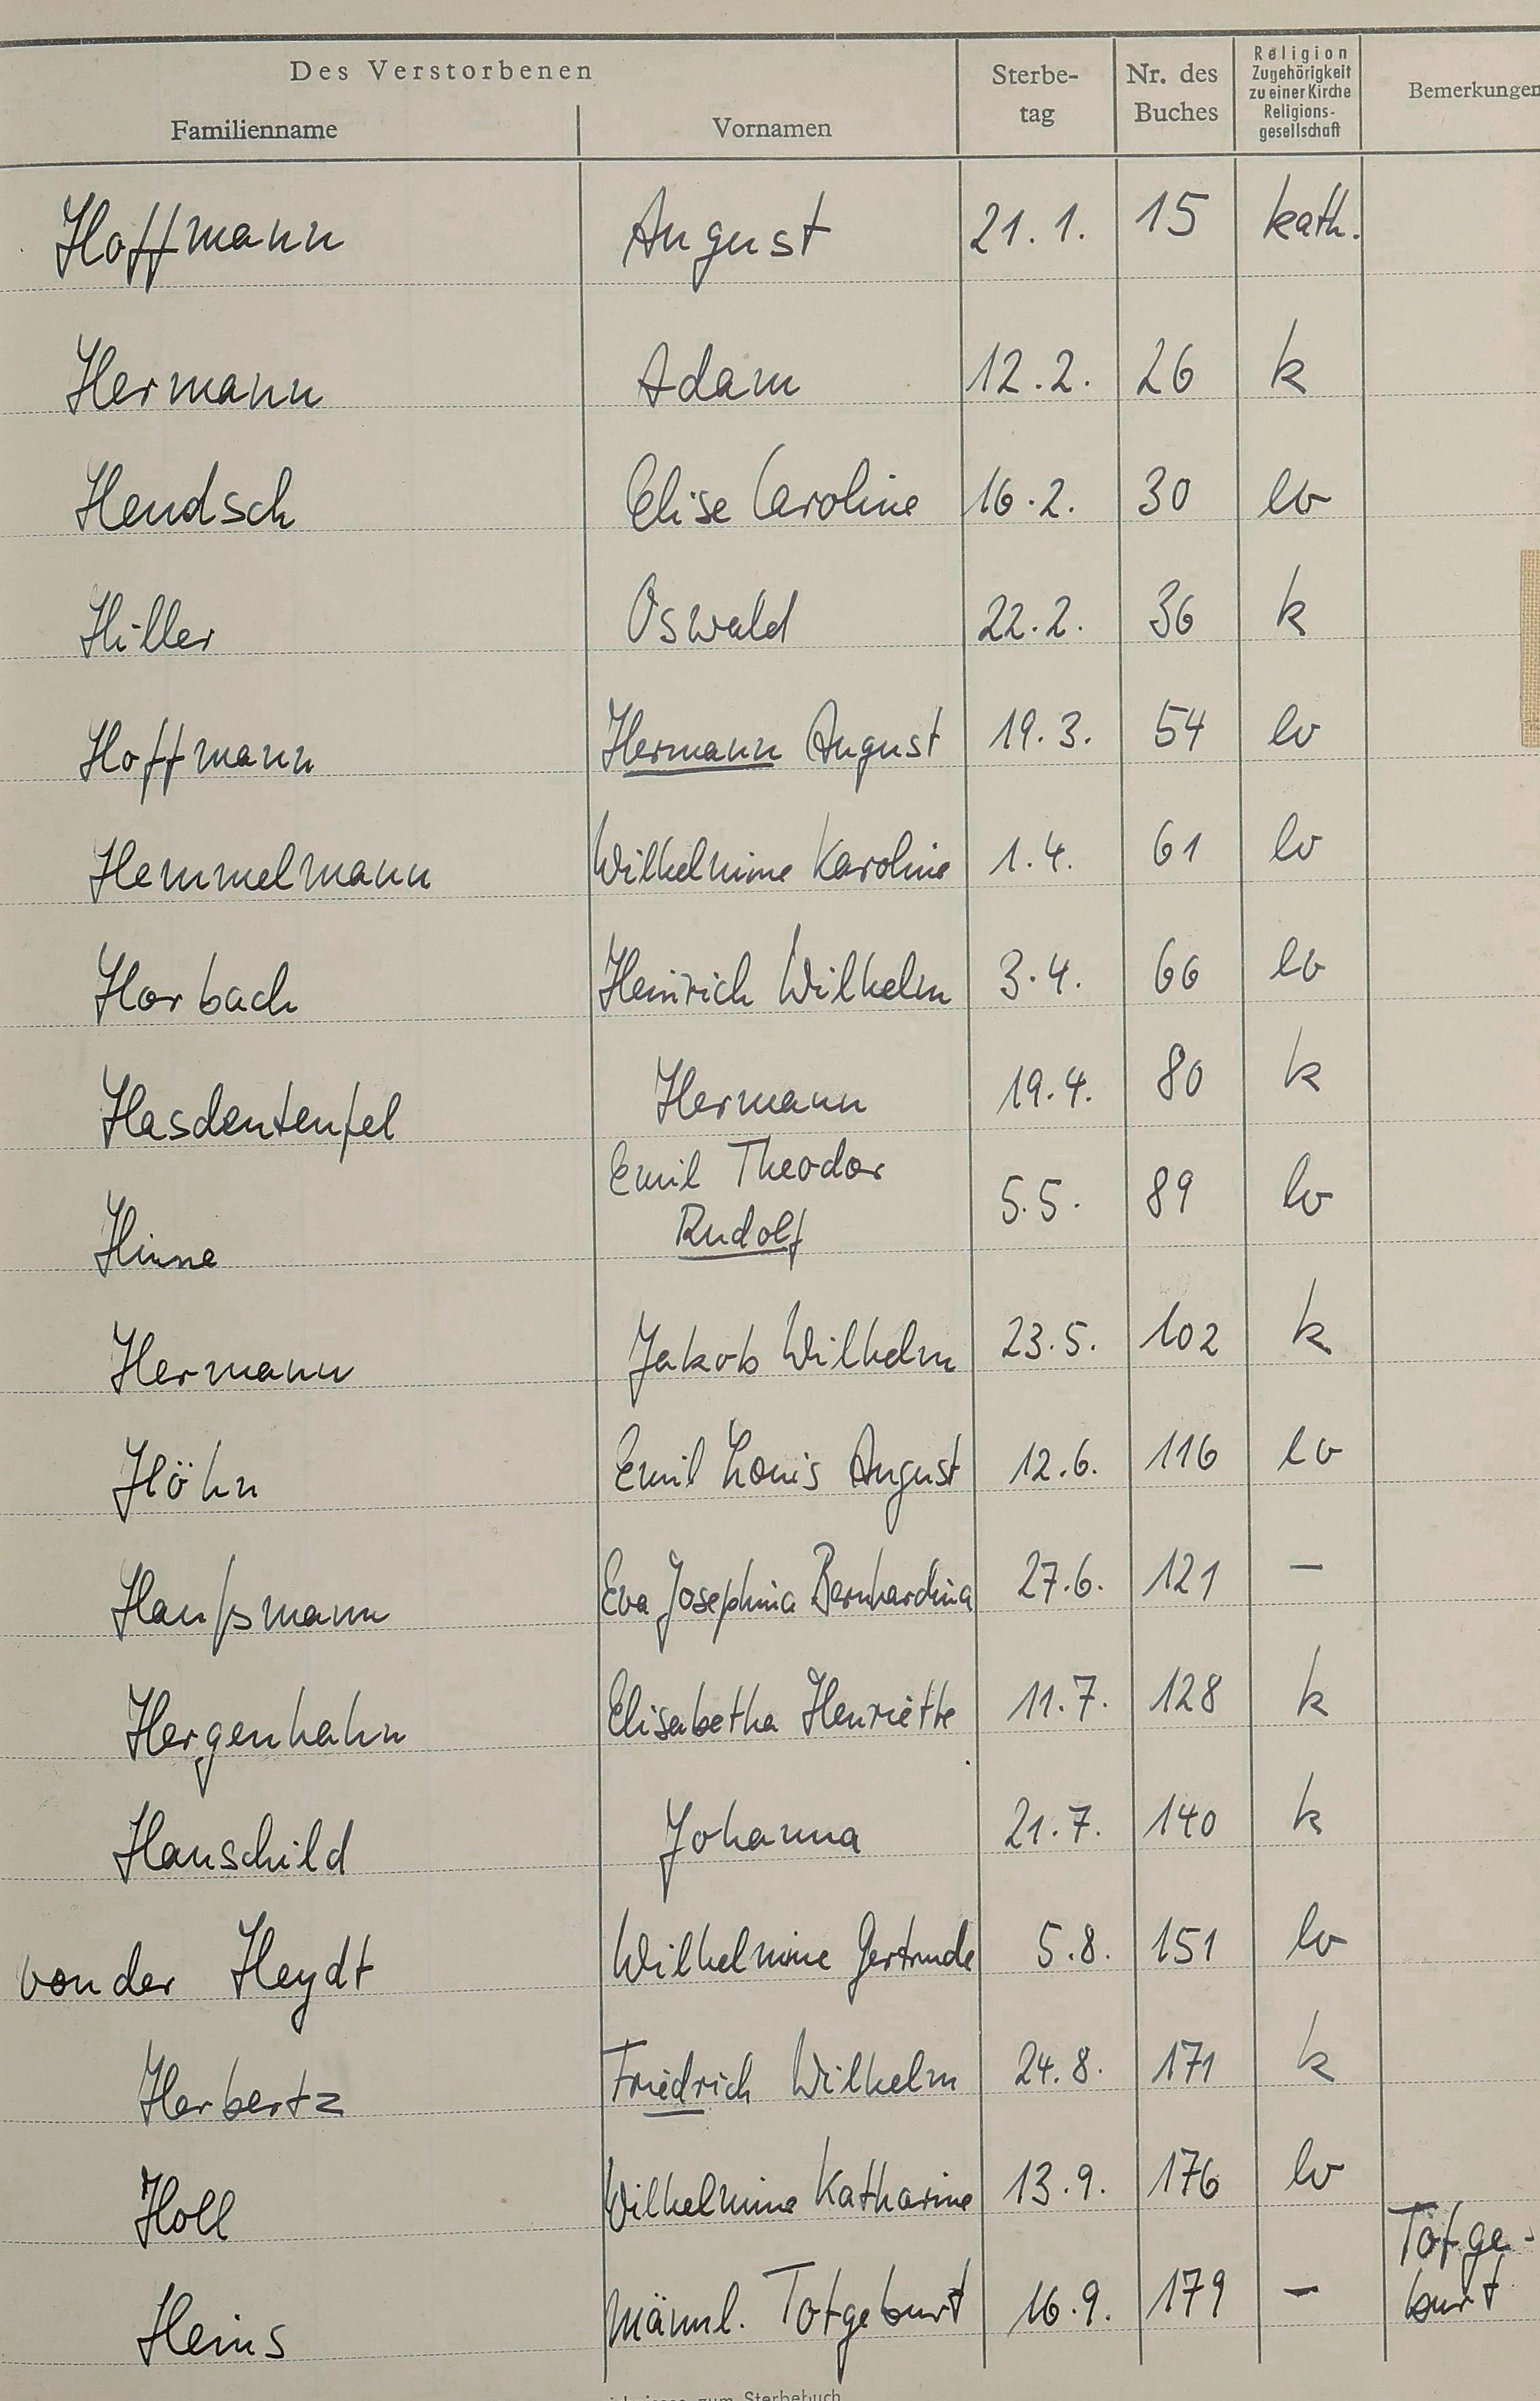 Des Verstorbenen
Familienname Vornamen Sterbe-
tag Nr. des
Buches Religion
Zugehörigkeit
zu einer Kirche
Religions-
gesellschaft Bemerkungen
Hoffmann August 21.1. 15 kath.
Hermann Adam 12.2. 26 k
Hendsch Elise Caroline 16.2. 30 ev
Hiller Oswald 22.2. 36 k
Hoffmann Hermann August 19.3. 54 ev
Hemmelmann Wilhelmine Karoline 1.4. 61 ev
Horbach Heinrich Wilhelm 3.4. 66 ev
Hasdenteufel Hermann 19.4. 80 k
Emil Theodor
Hinne Rudolf 5.5. 89 ev
Hermann Jakob Wilhelm 23.5. 102 k
Höhn Emil Louis August 12.6. 116 ev
Haußmann Eva Josephina Bernhardina 27.6. 121 –
Hergenhahn Elisabetha Henriette 11.7. 128 k
Hauschild Johanna 21.7. 140 k
von der Heydt Wilhelmine Gertrude 5.8. 151 ev
Herbertz Friedrich Wilhelm 24.8. 171 k
Holl Wilhelmine Katharine 13.9. 176 ev
Heins männl. Totgeburt 16.9. 179 – Totge-
burt
zum Sterbebuch